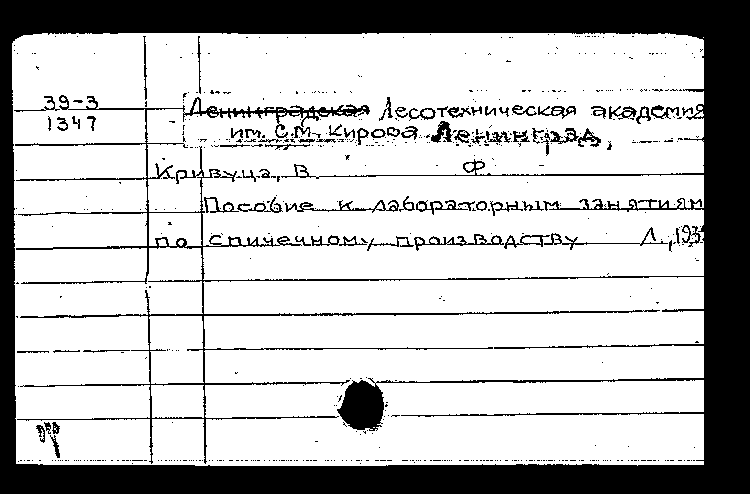 39-3
1347
Ленинградская Лесотехническая академия
им. С.М. Кирова Ленинград,
Кривуца, В. Ф.
Пособие к лабораторным занятиям
по спичечному производству Л.,